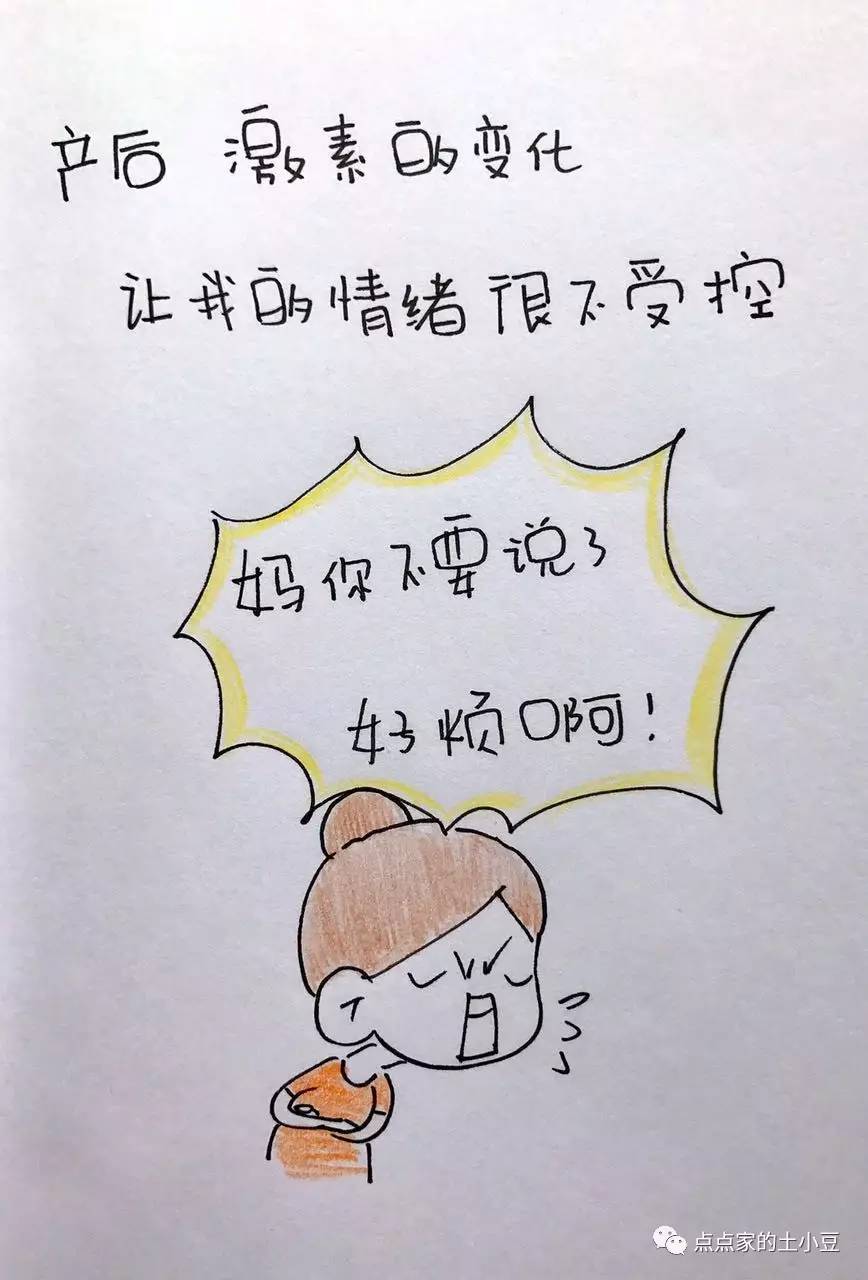 产后 激素的变化
让我的情绪很不受控
妈你不要说了
好烦啊!
点点家的土小豆